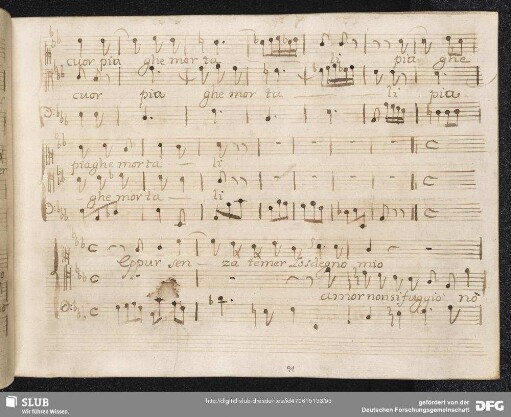 cuor pia ghe mor ta pia ghe
cuor pia ghe mor ta li pia
piaghe morta li
ghe morta li
Eppur sen za temer lo sdegno mio
amor non si fuggio nò
91
SLUB
Wir führen Wissen.
gefördert von der
Deutschen Forschungsgemeinschaft
DFG